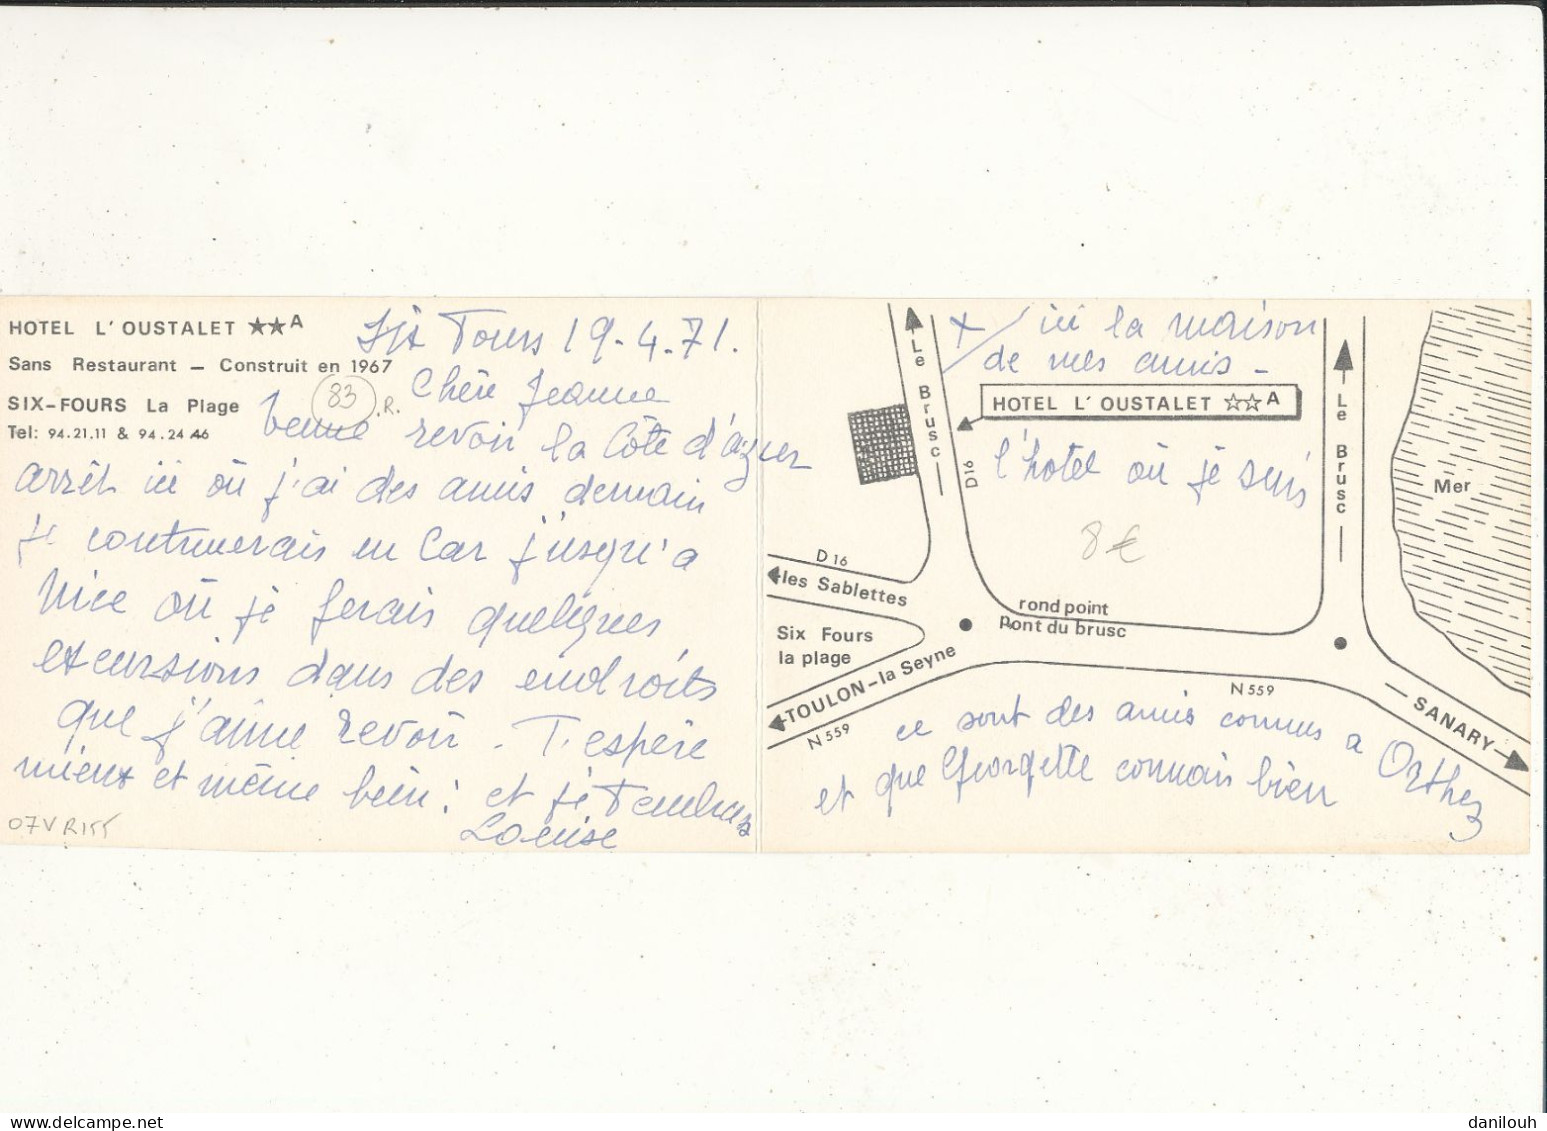 HOTEL L'OUSTALET ★★A
Sans Restaurant — Construit en 1967
SIX-FOURS La Plage
Tel: 94.21.11 & 94.24.46
83
.R.
Six Fours 19.4.71.
Chère Jeanne
venue revoir la Côte d'azur
arrêt ici où j'ai des amis demain
je continuerais en Car j'usqu'a
Nice où je ferais quelques
excursions dans des endroits
que j'aime revoir. T'espère
mieux et même bien; et je t'embras
Louise
07VR155
x ici la maison
de mes amis -
Le Brusc
HOTEL L'OUSTALET ☆☆A
D16
l'hotel où je suis
8€
Le Brusc
Mer
D 16
les Sablettes
rond point
Pont du brusc
Six Fours
la plage
TOULON-la Seyne
N 559
N 559
SANARY
ce sont des amis connus a Orthez
et que Georgette connais bien
danilouh